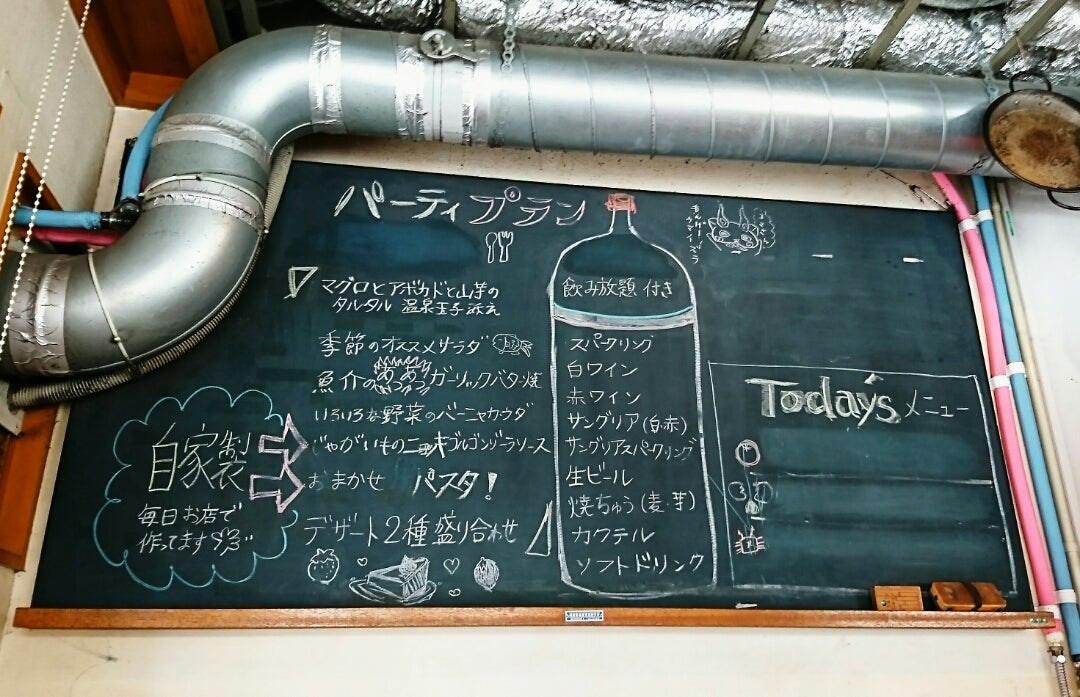 パーティプラン
マグロとアボカドと山芋の
タルタル 温泉玉子添え
季節のオススメサラダ
魚介のあつあつガーリックバター焼
いろいろな野菜のバーニャカウダ
じゃがいものニョッキゴルゴンゾーラソース
おまかせ パスタ!
デザート2種盛り合わせ
自家製
毎日お店で
作ってます
飲み放題 付き
スパークリング
白ワイン
赤ワイン
サングリア(白・赤)
サングリアスパークリング
生ビール
焼ちゅう(麦・芋)
カクテル
ソフトドリンク
Today's メニュー